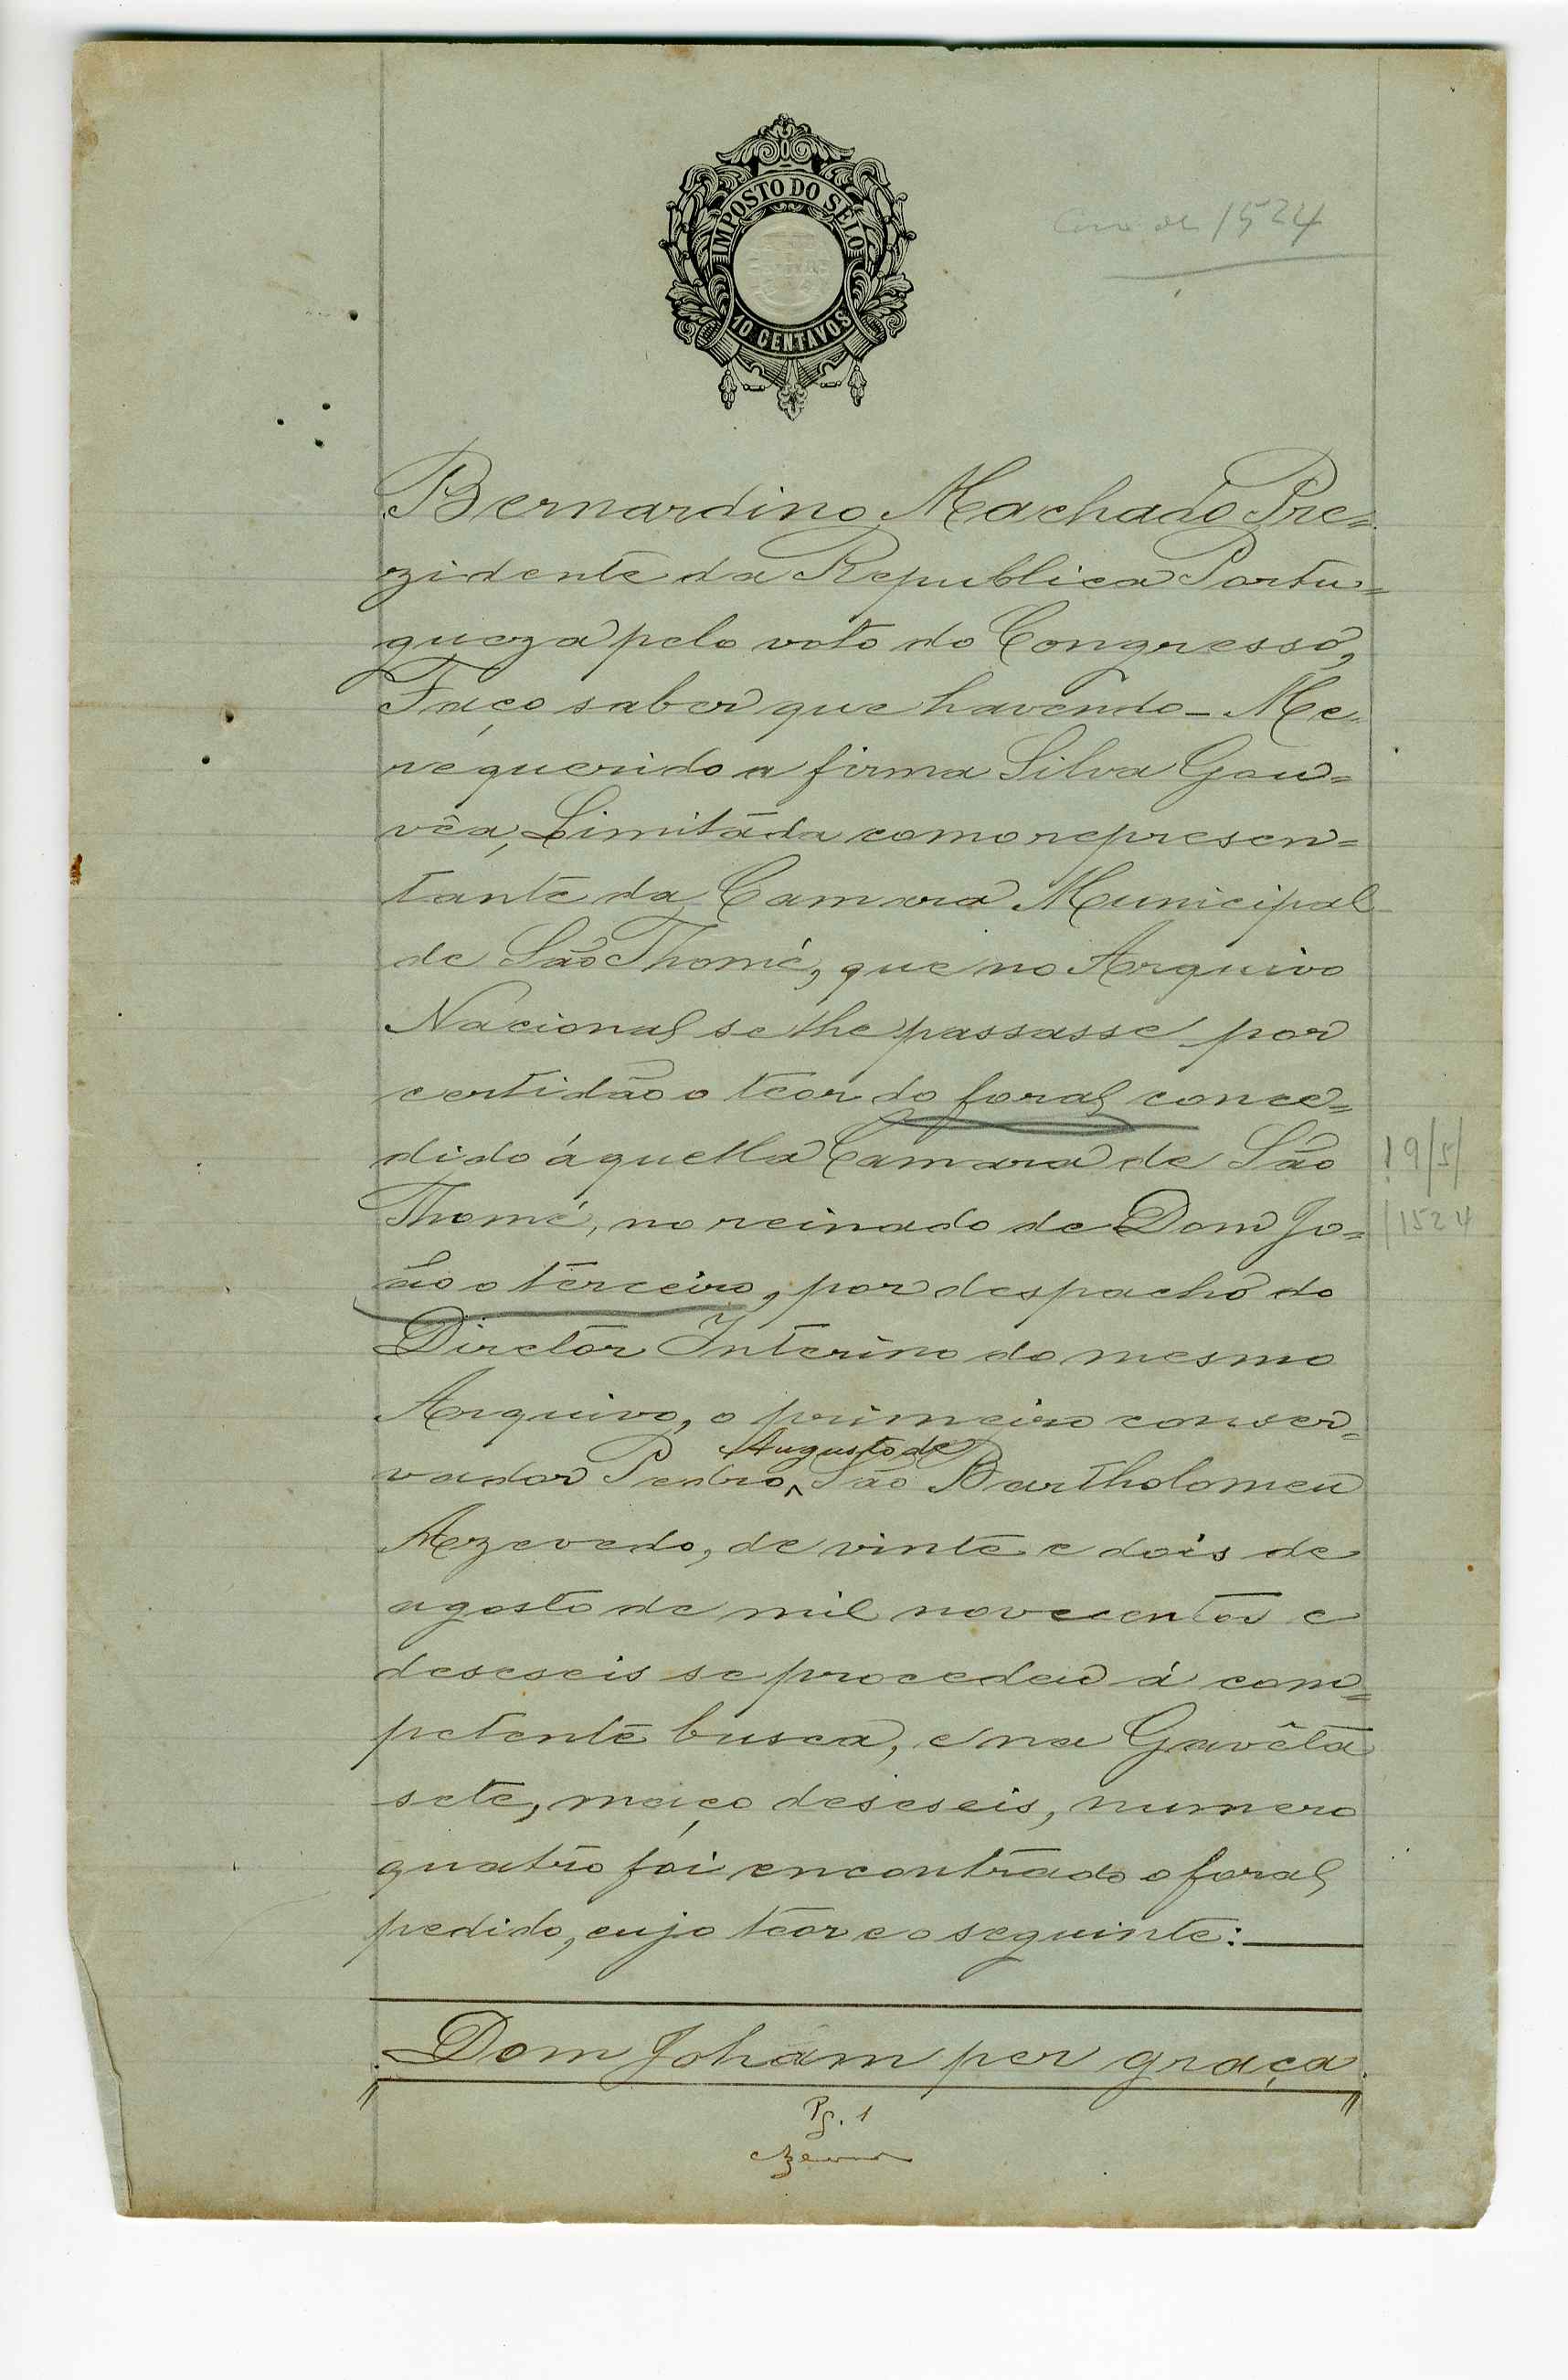 IMPOSTO DO SELO
10 CENTAVOS
1524
Bernardino Machado Pre=
zidente da Republica Portu=
gueza pelo voto do Congresso,
Faço saber que havendo-Me
requerido a firma Silva Gou=
vêa, Limitada como represen=
tante da Camara Municipal
de São Thomé, que no Arquivo
Nacional se lhe passasse por
certidão o teor do foral conce=
dido áquella Camara de São
19/5/
Thomé, no reinado de Dom Jo=
1524
ão o terceiro, por despacho do
Diretor Interino do mesmo
Arquivo, o primeiro conser=
Augusto de
vador Pedro ^ São Bartholomeu
Azevedo, de vinte e dois de
agosto de mil novecentos e
deseseis se procedeu á com=
petente busca, e na Gavêta
sete, maço deseseis, numero
quatro foi encontrado o foral
pedido, cujo teor e o seguinte:
Dom Joham per graça
Pg. 1